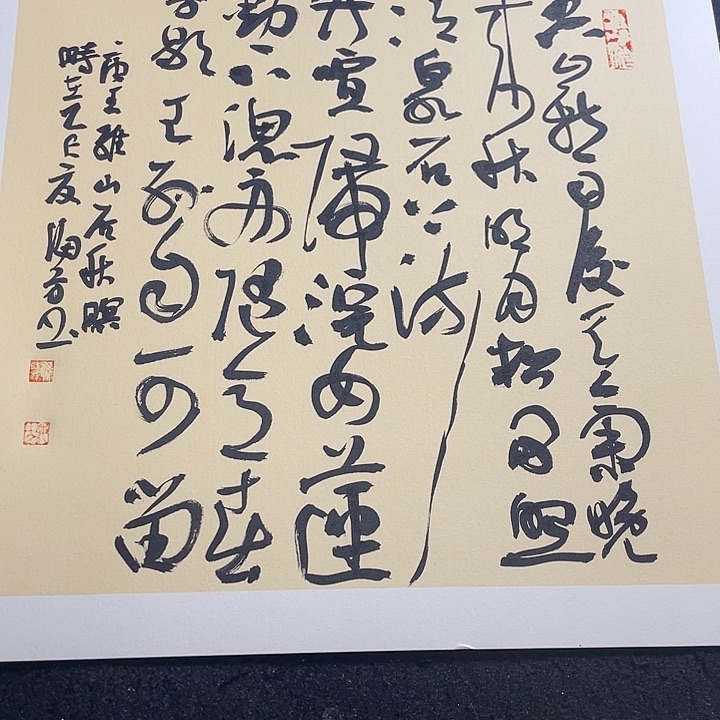 空山新雨後天氣晚
來秋明月松間照
清泉石上流
竹喧歸浣女蓮
動下漁舟隨意春
芳歇王孫自可留
唐王維山居秋暝
時在乙巳夏